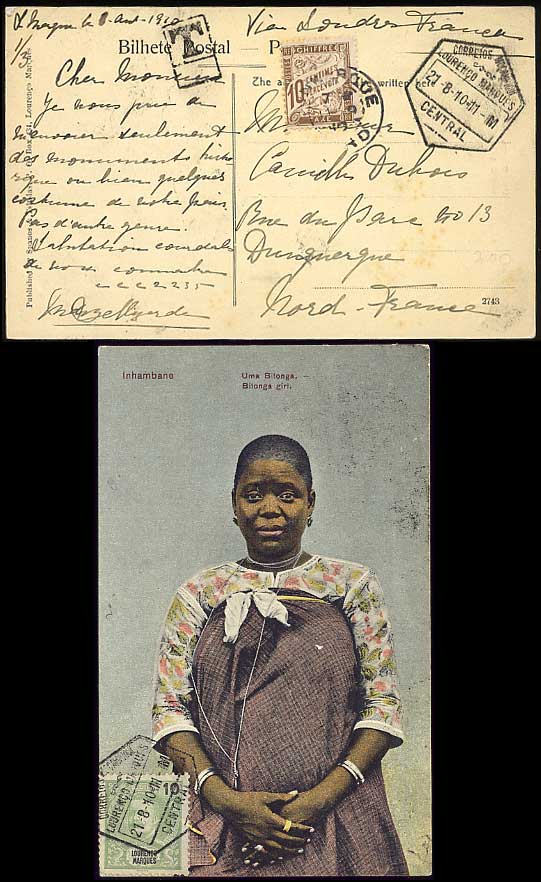 L. Marques le 8 Aout 1910
Via Londres France
1/3
Bilhete Postal
T
CHIFFRE
10 CENTIMES
A PERCEVOIR
TAXE
CORREIOS
LOURENÇO MARQUES
27-8-10-11-M
CENTRAL
written here
Cher Monsieur
Je vous prie de
m'envoyer seulement
des monuments histo
rique ou bien quelques
costume de votre pais
Pas d'autre genre.
Salutation cordiale
de vous
2235
Monsieur
Camille Dubois
Rue du Parc No 13
Dunquerque
Nord-France
2743
Inhambane
Uma Bitonga. —
Bitonga girl.
CORREIOS
LOURENÇO MARQUES
27-8-10-11-M
CENTRAL
10
LOURENÇO
MARQUES